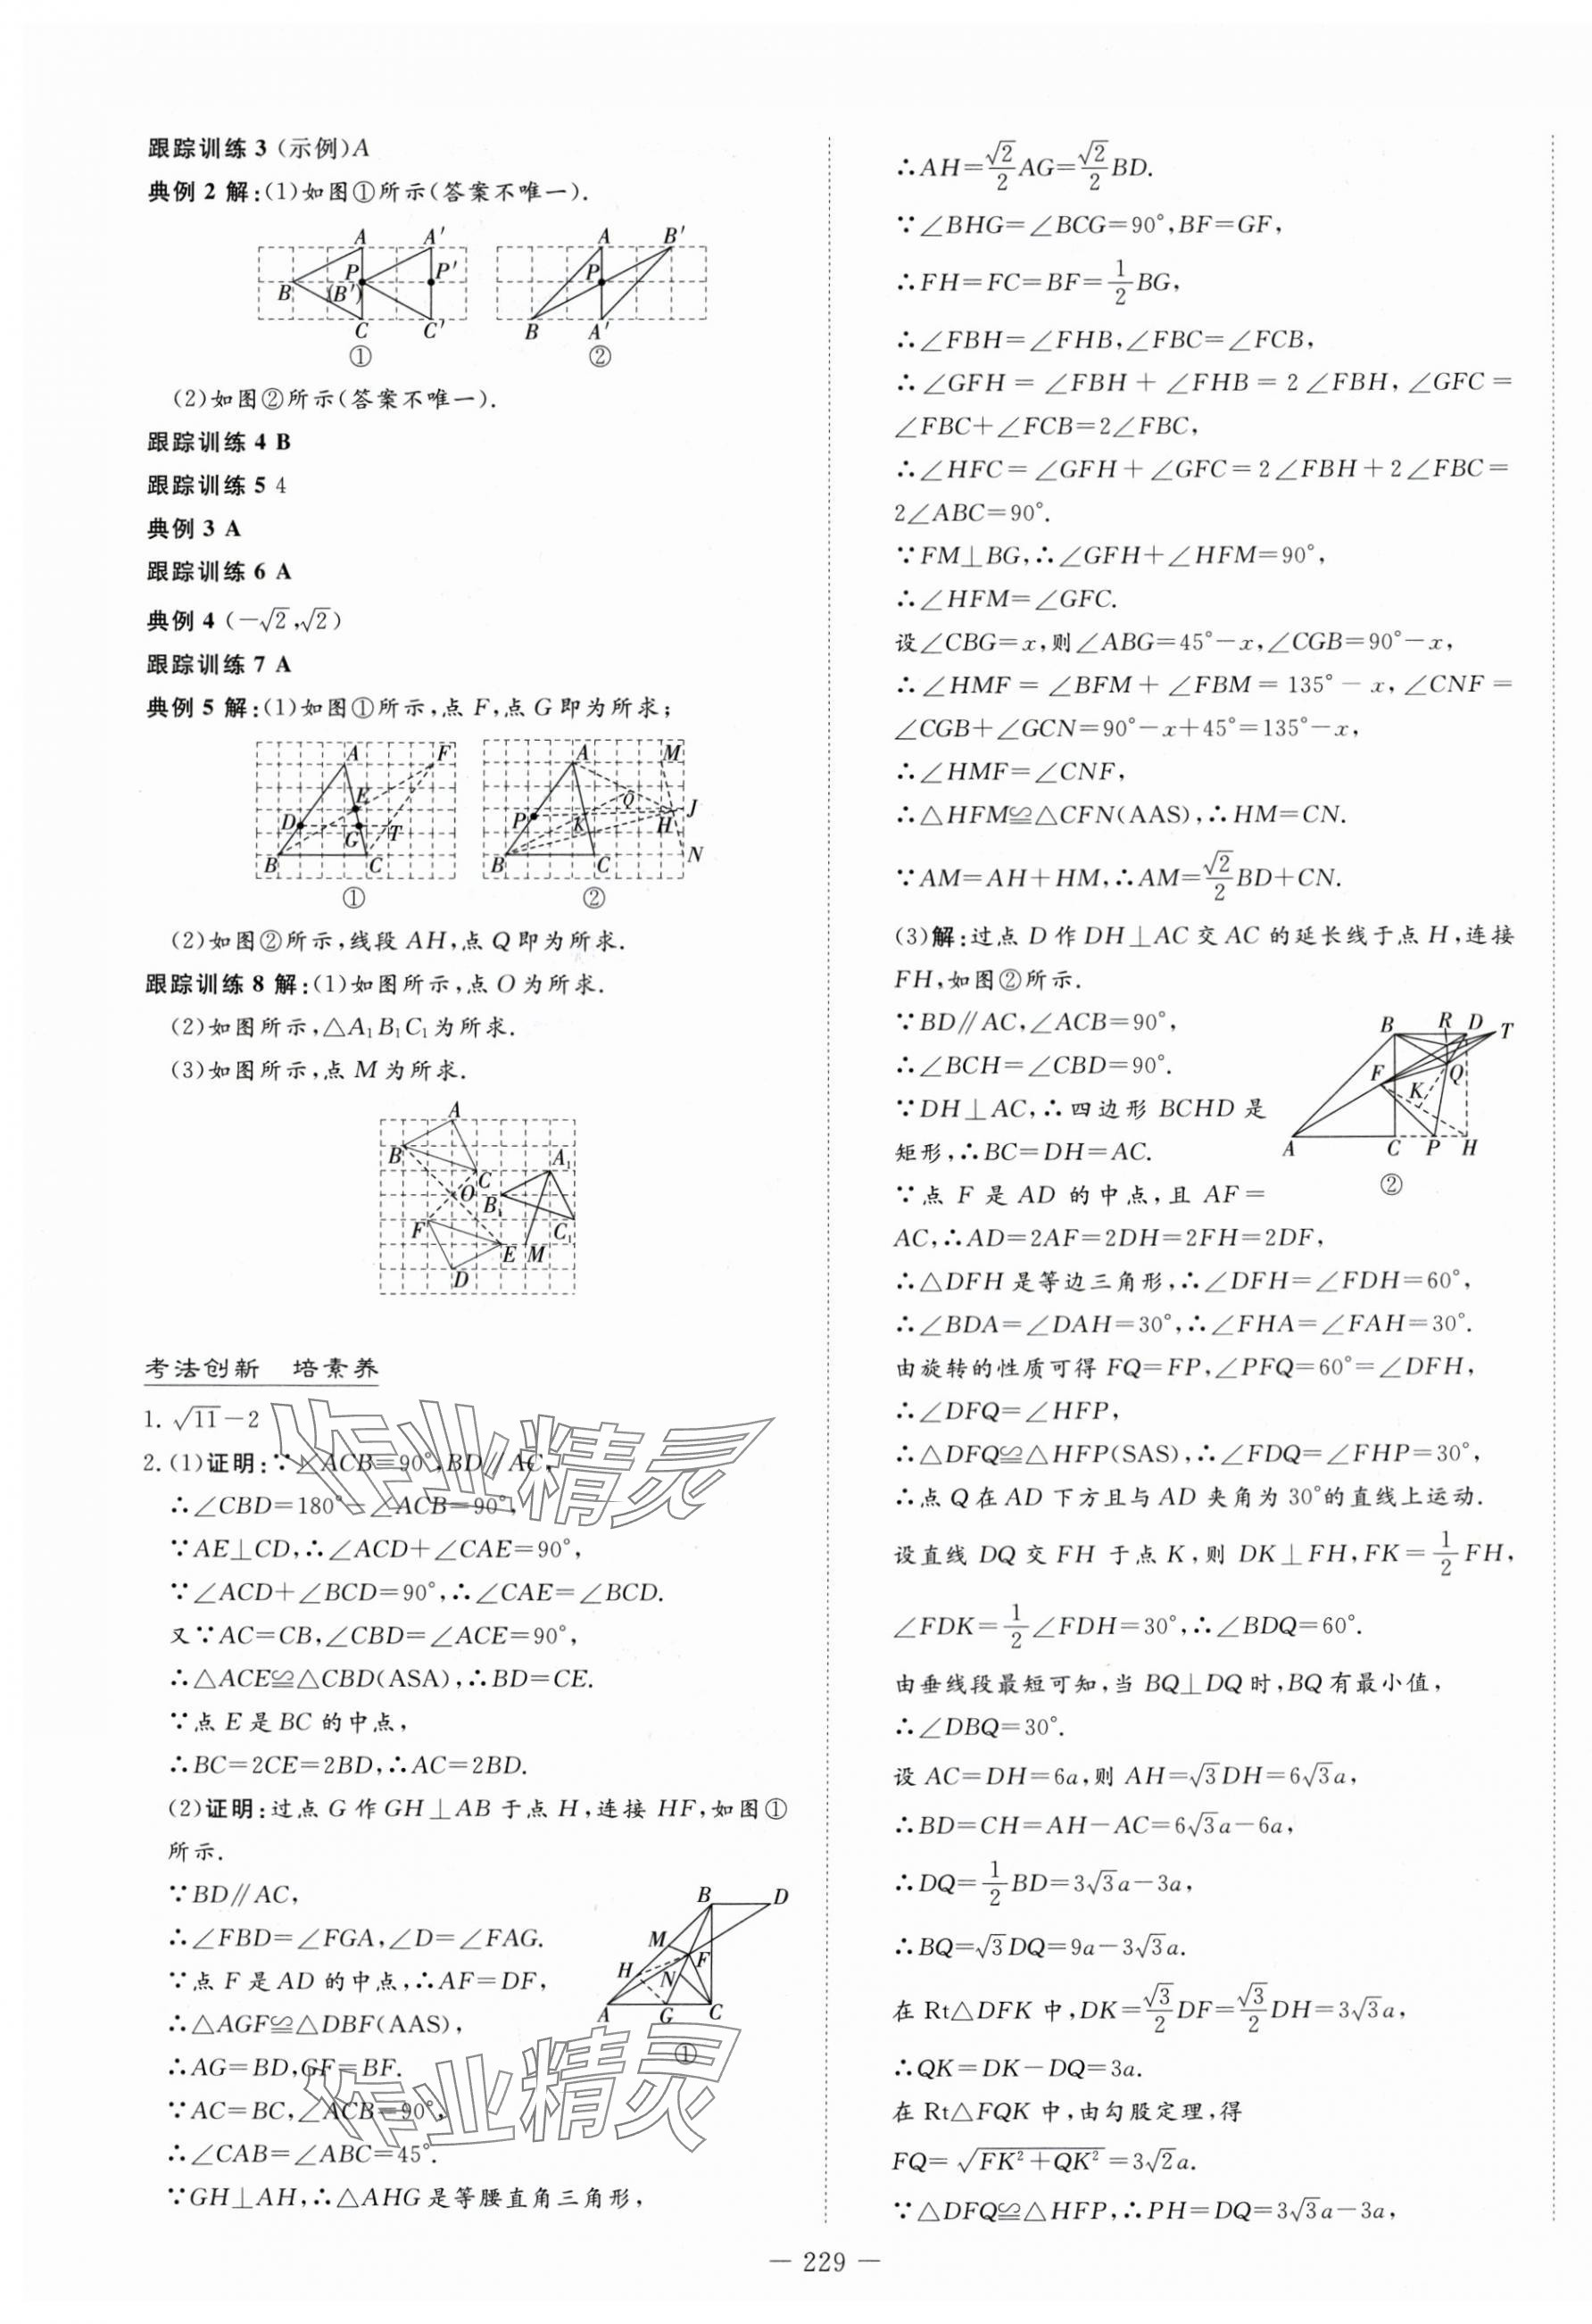 跟踪训练3 (示例)A
典例2 解:(1)如图①所示(答案不唯一).
A A′ A B′
P P′ P
B (B′)
C C′ B A′
① ②
(2)如图②所示(答案不唯一).
跟踪训练4 B
跟踪训练5 4
典例3 A
跟踪训练6 A
典例4 (-√2,√2)
跟踪训练7 A
典例5 解:(1)如图①所示,点F,点G即为所求;
A F A M
E Q J
D P K H
G T
B C B C N
① ②
(2)如图②所示,线段AH,点Q即为所求.
跟踪训练8 解:(1)如图所示,点O为所求.
(2)如图所示,△A₁B₁C₁为所求.
(3)如图所示,点M为所求.
A
B A₁
C
O B₁
F C₁
E M
D
考法创新 培素养
1. √11-2
2.(1)证明:∵∠ACB=90°,BD∥AC,
∴∠CBD=180°-∠ACB=90°,
∵AE⊥CD,∴∠ACD+∠CAE=90°,
∵∠ACD+∠BCD=90°,∴∠CAE=∠BCD.
又∵AC=CB,∠CBD=∠ACE=90°,
∴△ACE≌△CBD(ASA),∴BD=CE.
∵点E是BC的中点,
∴BC=2CE=2BD,∴AC=2BD.
(2)证明:过点G作GH⊥AB于点H,连接HF,如图①
所示.
∵BD∥AC,
∴∠FBD=∠FGA,∠D=∠FAG.
∵点F是AD的中点,∴AF=DF,
∴△AGF≌△DBF(AAS),
∴AG=BD,GF=BF.
∵AC=BC,∠ACB=90°,
∴∠CAB=∠ABC=45°.
∵GH⊥AH,∴△AHG是等腰直角三角形,
B D
M
F
H N
A G C
①
作业精灵
作业精灵
∴AH=√2/2 AG=√2/2 BD.
∵∠BHG=∠BCG=90°,BF=GF,
∴FH=FC=BF=1/2 BG,
∴∠FBH=∠FHB,∠FBC=∠FCB,
∴∠GFH=∠FBH+∠FHB=2∠FBH,∠GFC=
∠FBC+∠FCB=2∠FBC,
∴∠HFC=∠GFH+∠GFC=2∠FBH+2∠FBC=
2∠ABC=90°.
∵FM⊥BG,∴∠GFH+∠HFM=90°,
∴∠HFM=∠GFC.
设∠CBG=x,则∠ABG=45°-x,∠CGB=90°-x,
∴∠HMF=∠BFM+∠FBM=135°-x,∠CNF=
∠CGB+∠GCN=90°-x+45°=135°-x,
∴∠HMF=∠CNF,
∴△HFM≌△CFN(AAS),∴HM=CN.
∵AM=AH+HM,∴AM=√2/2 BD+CN.
(3)解:过点D作DH⊥AC交AC的延长线于点H,连接
FH,如图②所示.
∵BD∥AC,∠ACB=90°,
∴∠BCH=∠CBD=90°.
∵DH⊥AC,∴四边形BCHD是
矩形,∴BC=DH=AC.
∵点F是AD的中点,且AF=
AC,∴AD=2AF=2DH=2FH=2DF,
B R D T
F Q
K
A C P H
②
∴△DFH是等边三角形,∴∠DFH=∠FDH=60°,
∴∠BDA=∠DAH=30°,∴∠FHA=∠FAH=30°.
由旋转的性质可得FQ=FP,∠PFQ=60°=∠DFH,
∴∠DFQ=∠HFP,
∴△DFQ≌△HFP(SAS),∴∠FDQ=∠FHP=30°,
∴点Q在AD下方且与AD夹角为30°的直线上运动.
设直线DQ交FH于点K,则DK⊥FH,FK=1/2 FH,
∠FDK=1/2∠FDH=30°,∴∠BDQ=60°.
由垂线段最短可知,当BQ⊥DQ时,BQ有最小值,
∴∠DBQ=30°.
设AC=DH=6a,则AH=√3DH=6√3a,
∴BD=CH=AH-AC=6√3a-6a,
∴DQ=1/2 BD=3√3a-3a,
∴BQ=√3DQ=9a-3√3a.
在Rt△DFK中,DK=√3/2 DF=√3/2 DH=3√3a,
∴QK=DK-DQ=3a.
在Rt△FQK中,由勾股定理,得
FQ=√(FK²+QK²)=3√2a.
∵△DFQ≌△HFP,∴PH=DQ=3√3a-3a,
— 229 —